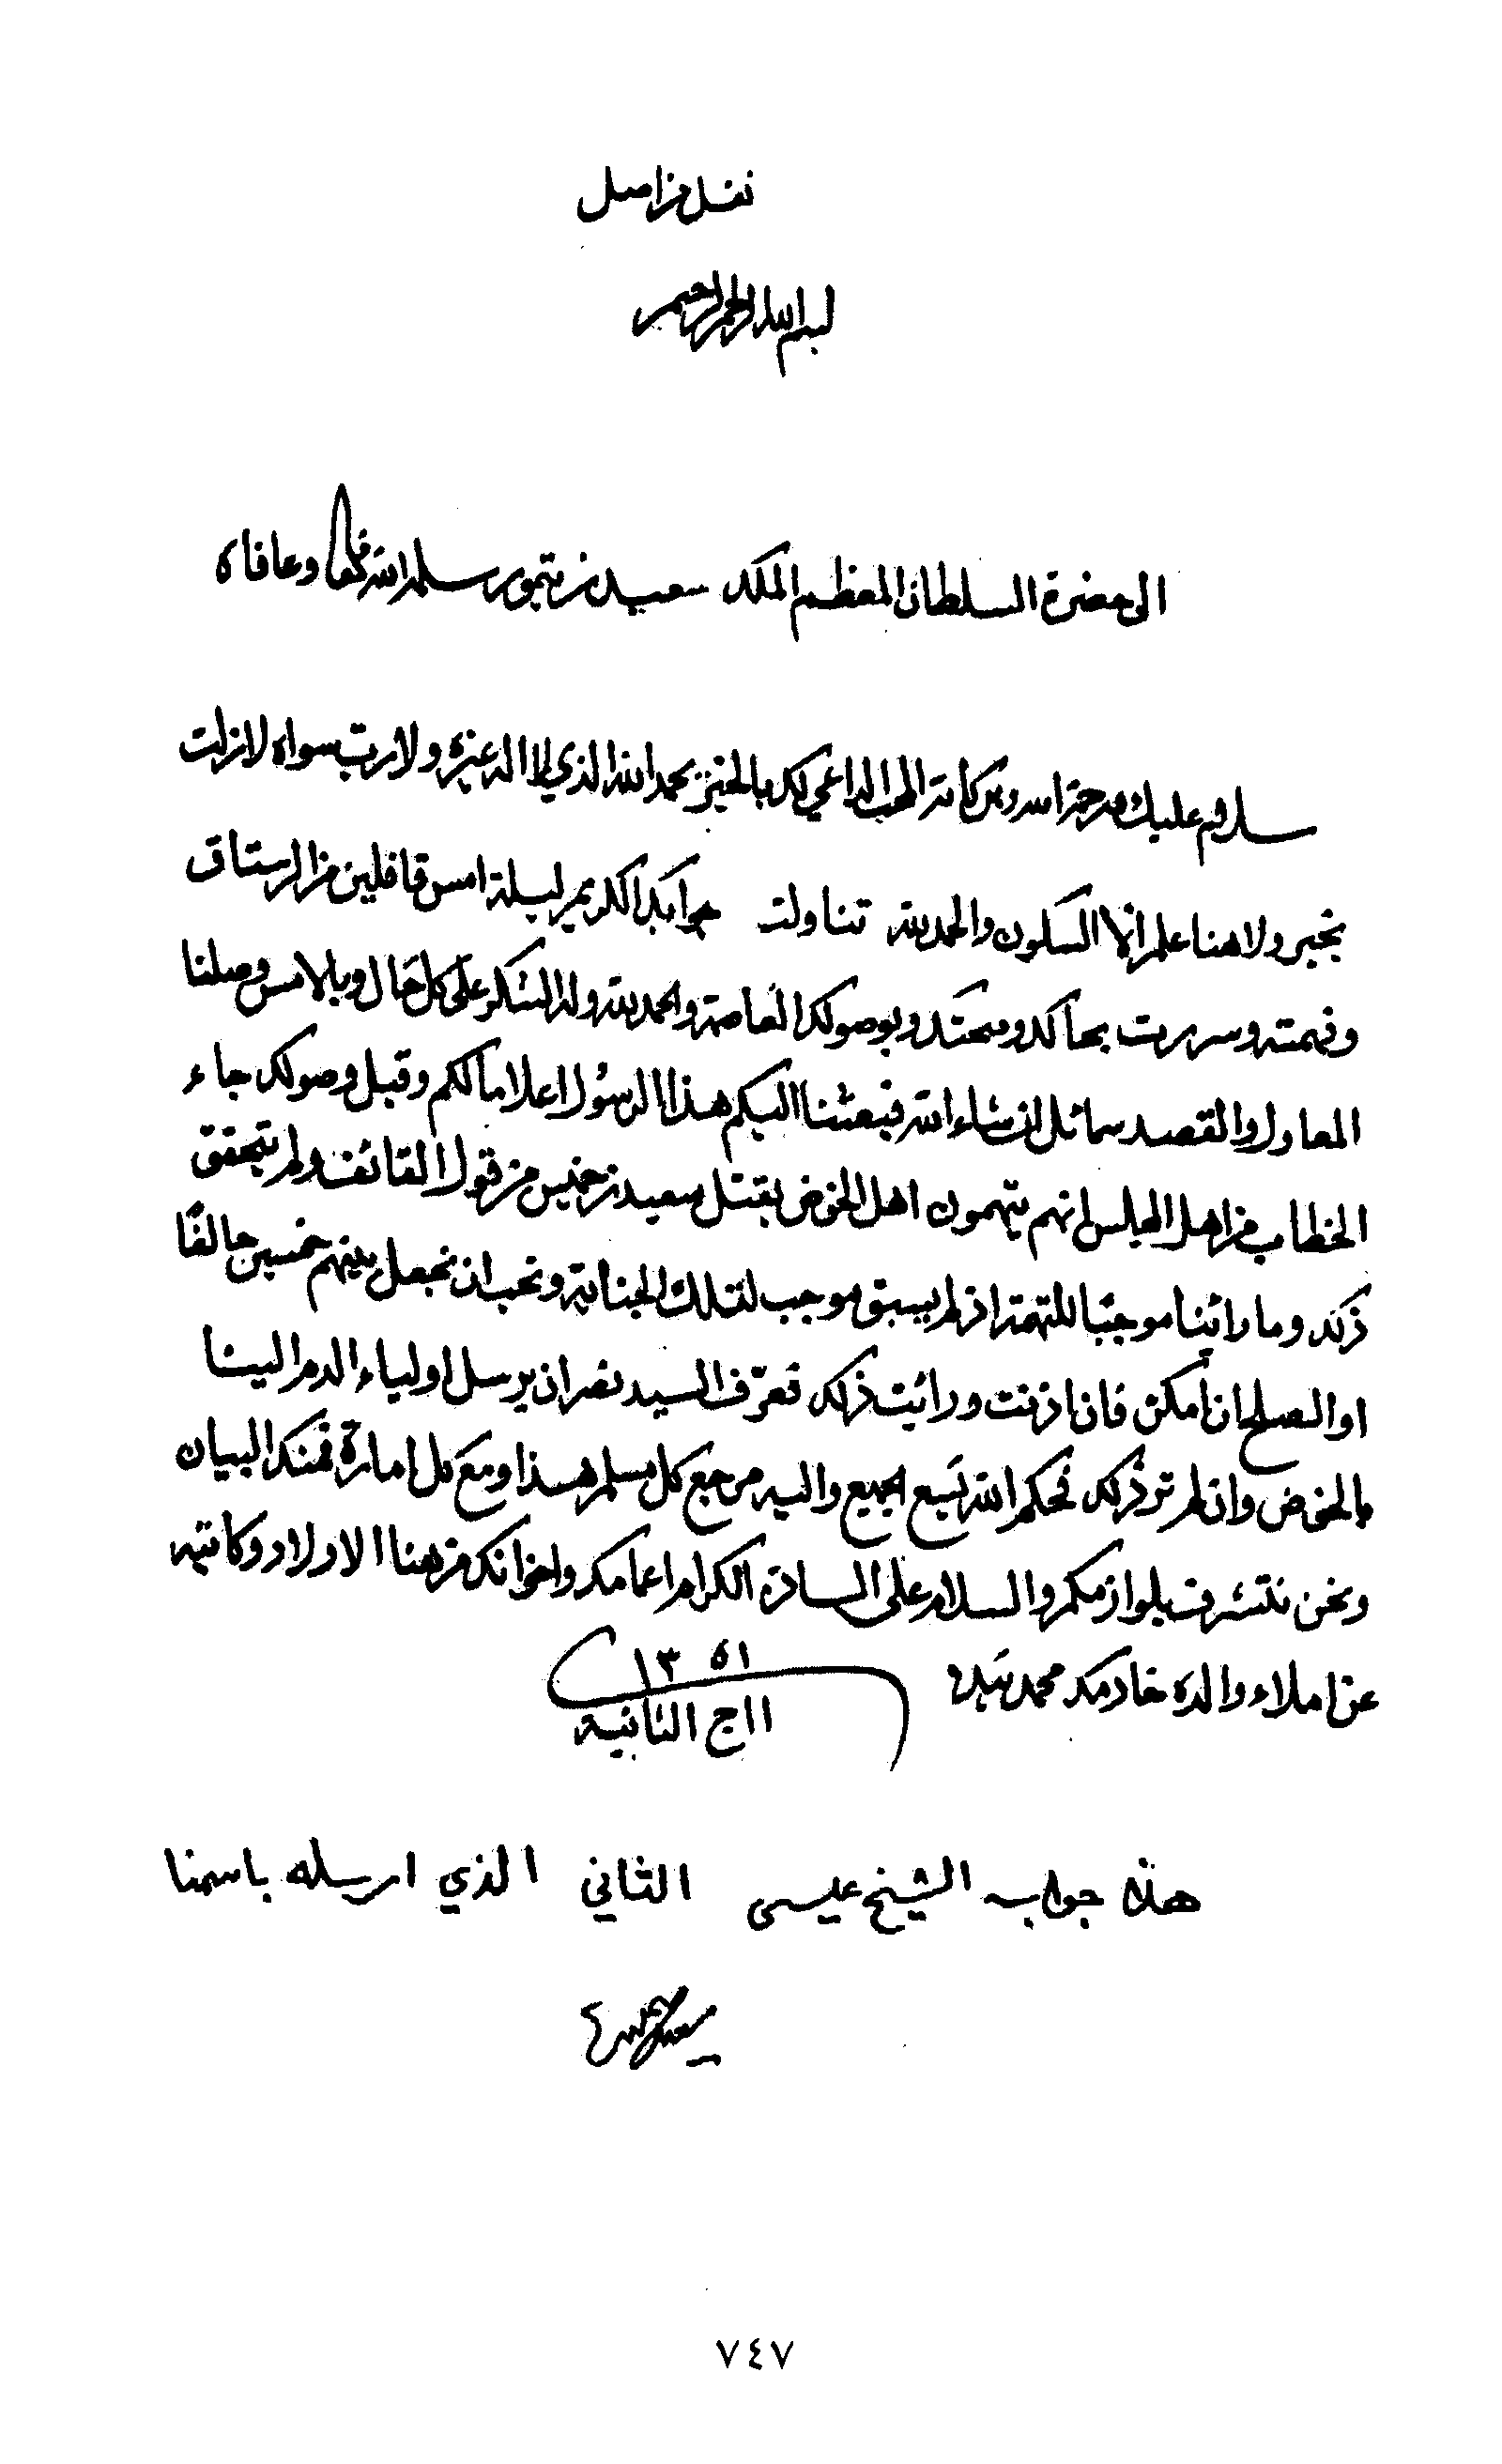 نقل من اصل
بسم الله الرحمن الرحيم
الى حضرة السلطان المعظم الملك سعيد بن تيمور سلمه الله تعالى وعافاه
سلام عليك ورحمة الله وبركاته المحب الداعي لك بالخير بحمد الله الذي لا اله غيره ولا رب سواه لازلت
بخير ولا هنا علم الا السكون والحمد لله تناولت جوابك الكريم ليلة امس قافلين من الرستاق
وفهمته وسررت بحالك وصحتك وبوصولك العاصمة والحمد لله وله الشكر على كل حال وبالامس وصلنا
المعاول والقصد سمائل ان شاء الله فبعثنا اليكم هذا الرسول اعلاما لكم وقبل وصولك جاء
الخطاب من اهل المجلس انهم يتهمون اهل الخوض بقتل سعيد بن خميس من قول القائف ولم يتحقق
ذلك وما رائينا موجبًا للتهمة اذ لم يسبق موجب لتلك الجناية ونحب ان نجعل بينهم خمسين حالفًا
او الصلح ان امكن فان اذنت ورائيت ذلك فعرّف السيد نصر ان يرسل اولياء الدم الينا
بالخوض وان لم تر ذلك فحكم الله يسع الجميع واليه مرجع كل مسلم هذا ومع كل امارة فمنك البيان
ونحن نتشرف بلوازمكم والسلام على السادة الكرام اعمامك واخوانك من هنا الاولاد وكاتبه
عن املاء والده خادمك محمد بيده
١٣٥١
١١ ج الثانية
هذا جواب الشيخ عيسى الثاني الذي ارسله باسمنا
٧٤٧